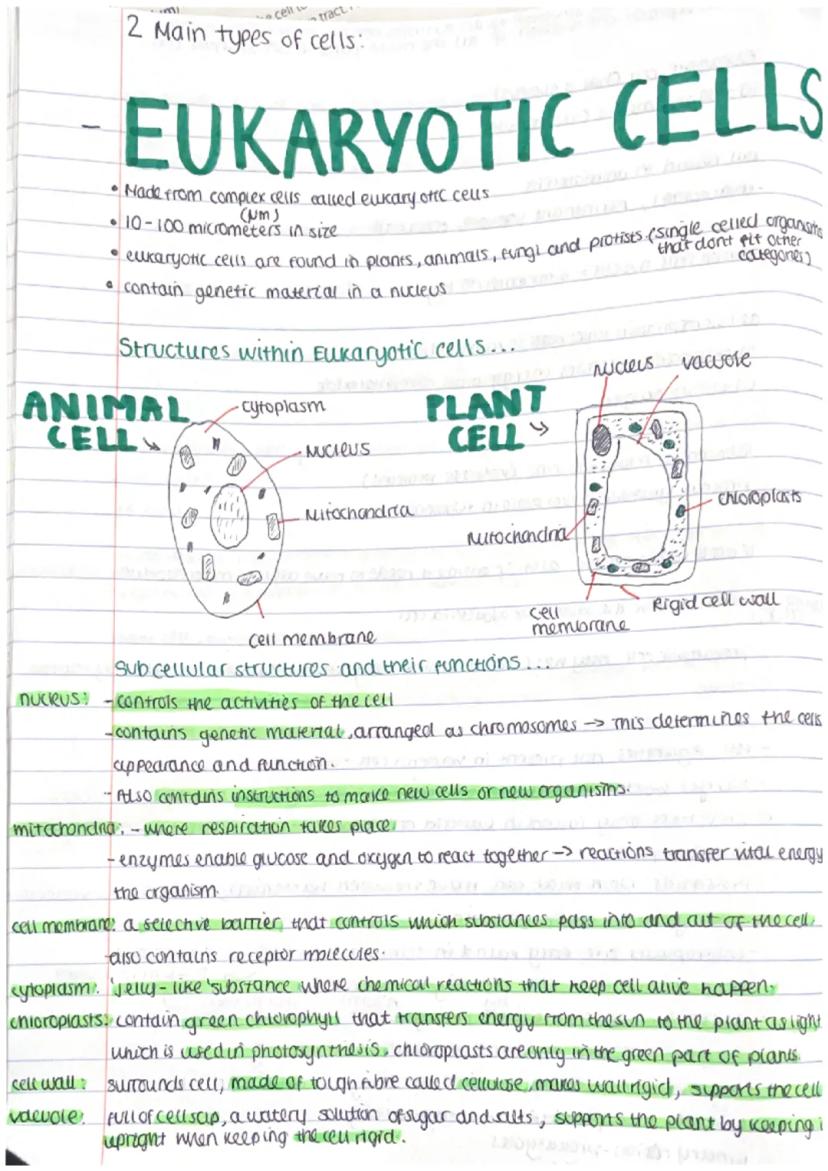 cell to
tract
2 Main types of cells:
- EUKARYOTIC CELLS
• Made from complex cells called eukaryotic cells
(Nm)
• 10-100 micrometers in size
• eukaryotic cells are found in plants, animals, fungi and protists (single celled organisms
that dont fit other
categories)
• contain genetic material in a nucleus
Structures within Eukaryotic cells...
ANIMAL
CELL
cytoplasm
nucleus
mitochondria
cell membrane
PLANT
CELL
nucleus
vacuole
chloroplasts
mitochondria
cell
membrane
Rigid cell wall
Subcellular structures and their functions...
nucleus: - controls the activities of the cell
- contains genetic material, arranged as chromosomes → this determines the cells
appearance and function.
- Also contains instructions to make new cells or new organisms.
mitochondria: - where respiration takes place
- enzymes enable glucose and oxygen to react together → reactions transfer vital energy
the organism.
cell membrane: a selective barrier, that controls which substances pass into and out of the cell.
also contains receptor molecules.
cytoplasm: 'jelly-like' substance where chemical reactions that keep cell alive happen.
chloroplasts: contain green chlorophyll that transfers energy from the sun to the plant as light
which is used in photosynthesis, chloroplasts are only in the green part of plants
cell wall: surrounds cell, made of tough fibre called cellulose, makes wall rigid, supports the cell
vacuole: full of cell sap, a watery solution of sugar and salts, supports the plant by keeping i
upright when keeping the cell rigid.